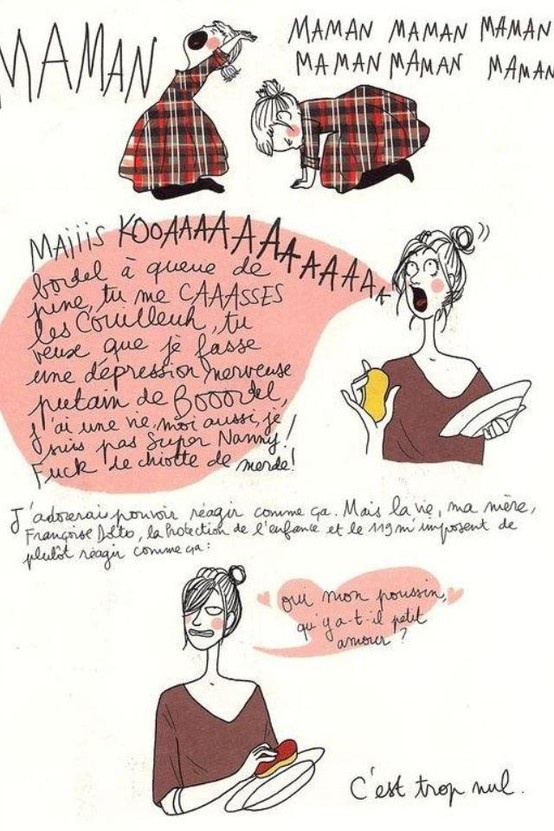 MAMAN
MAMAN MAMAN MAMAN
MAMAN MAMAN MAMAN
MAiiiS KOOAAAAAAAAAAAAAA
bordel à queue de
pine, tu me CAAASSES
les Couilleuh, tu
veux que je fasse
une dépression nerveuse
putain de Booordel,
j'ai une vie, moi aussi, je
suis pas Super Nanny!
Fuck de chiotte de merde!
J'adorerais pouvoir réagir comme ça. Mais la vie, ma mère,
Françoise Dolto, la Protection de l'enfance et le 119 m'imposent de
plutôt réagir comme ça:
oui mon poussin,
qu'y a-t-il petit
amour?
C'est trop nul.